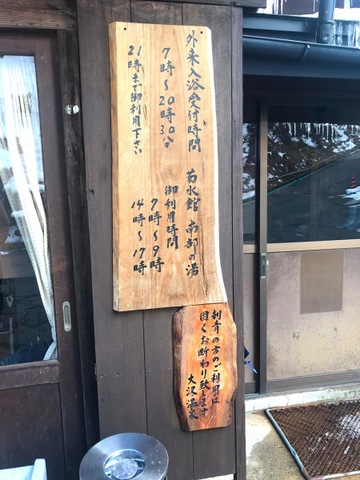 外来入浴受付時間
7時～20時30分
21時まで御利用下さい
菊水館 南部の湯
御利用時間
7時～9時
14時～17時
刺青の方のご利用は
固くお断わり致します
大沢温泉